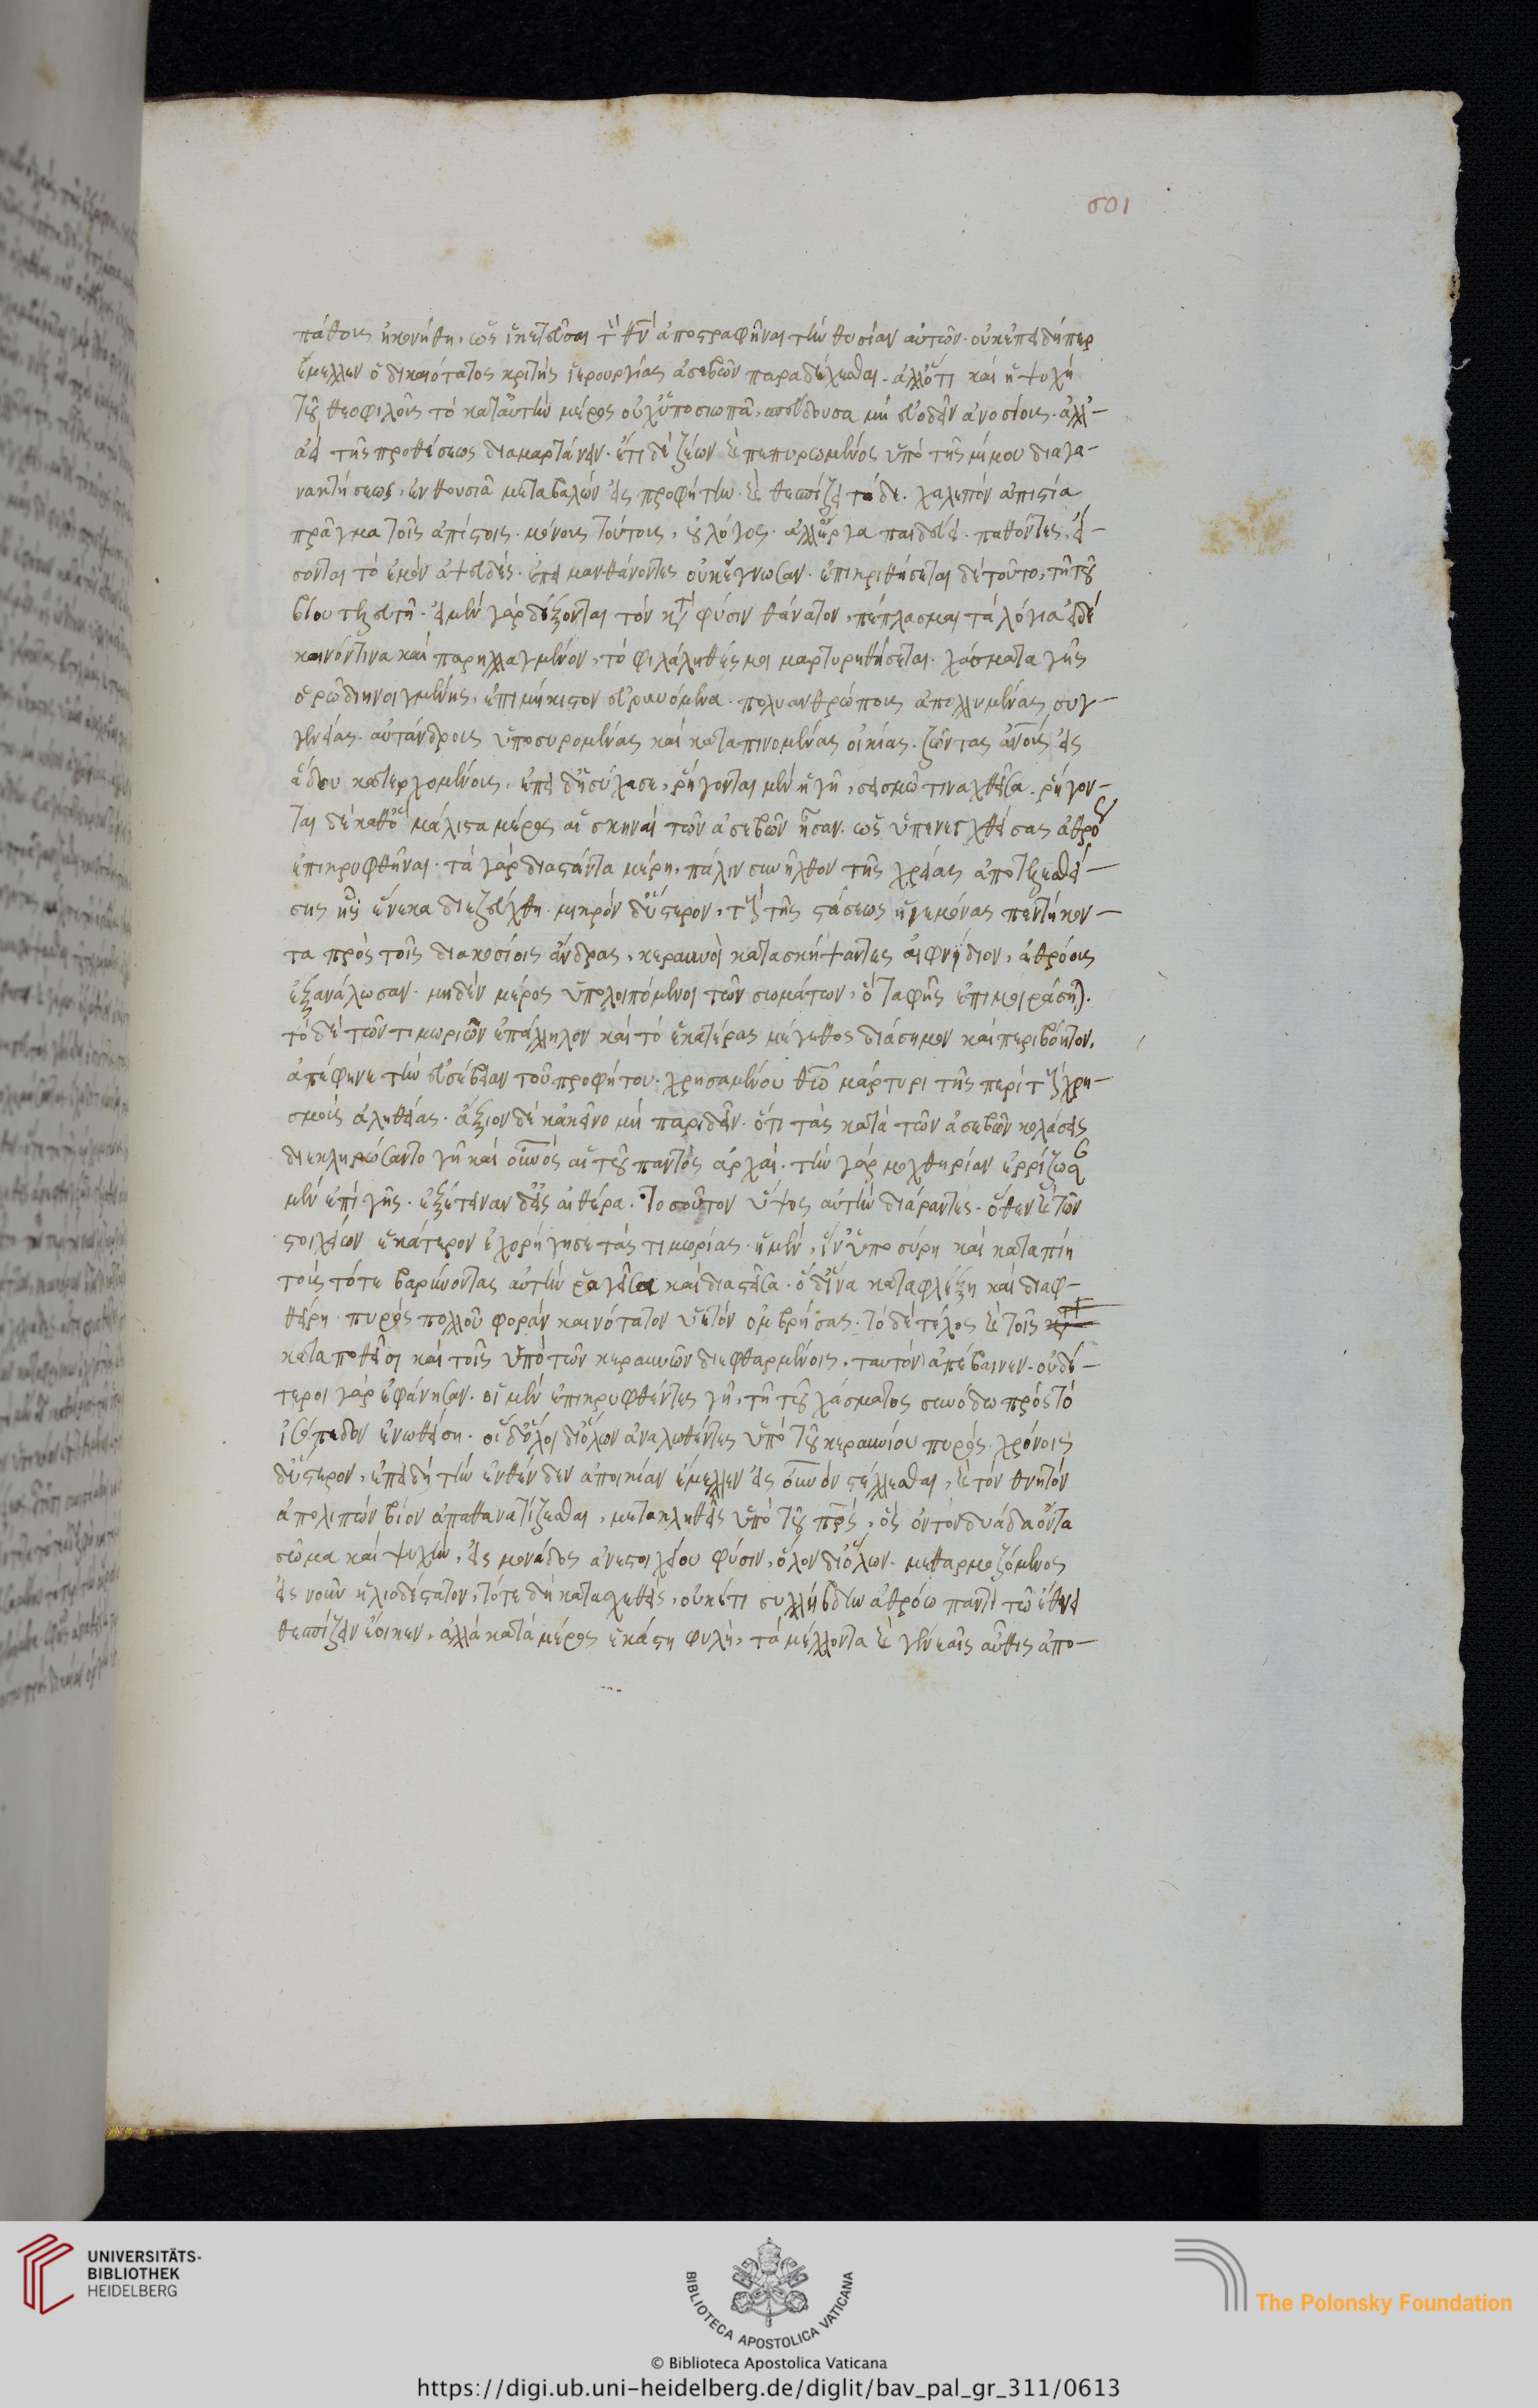 601
πάθους ἠκονήθη, ὡς ἱκετεῦσαι τ̀ θν̄ ἀποστραφῆναι τὴν θυσίαν αὐτῶν· οὐκ ἐπειδήπερ
ἔμελλεν ὁ δικαιότατος κριτὴς ἱερουργίας ἀσεβῶν παραδέχεσθαι· ἀλλ' ὅτι καὶ ἡ ψυχὴ
τοῦ θεοφιλοῦς τὸ κατ' αὐτὴν μέρος οὐχ ὑποσιωπᾶ, σπεύδουσα μὴ εὐοδεῖν ἀνοσίοις· ἀλλ'
ἀεὶ τῆς προθέσεως διαμαρτάνειν· ἔτι δὲ ζέων καὶ πεπυρωμένος ὑπὸ τῆς νομίμου διαγα-
νακτήσεως, ἐνθουσιᾶ μεταβαλὼν εἰς προφήτην· καὶ θεσπίζει τάδε. χαλεπὸν ἀπιστία
πρᾶγμα τοῖς ἀπίστοις μόνοις· τούτους, οὐ λόγος· ἀλλ' ἔργα παιδεύει· παθόντες, εἴ-
σονται τὸ ἐμὸν ἀψευδές· ἐπεὶ μανθάνοντες οὐκ ἔγνωσαν· ἐπικριθήσεται δὲ τοῦτο, τῆ τοῦ
βίου τελευτῆ· εἰ μὲν γὰρ δέξονται τὸν κατὰ φύσιν θάνατον, πέπλασμαι τὰ λόγια· εἰ δὲ
καινόν τινα καὶ παρηλλαγμένον, τὸ φιλάληθές μοι μαρτυρηθήσεται· χάσματα γῆς
ὁρῶ διηνοιγμένης, ἐπὶ μήκιστον εὐρυνόμενα· πολυανθρώπους ἀπολλυμένας συγ-
γενείας· αὐτάνδρους ὑποσυρομένας καὶ καταπινομένας οἰκίας· ζῶντας ἀνο̄υς εἰς
ἅδου κατερχομένους, ἐπεὶ δ' ἡσύχασε, ῥήγνυται μὲν ἡ γῆ, σεισμῶ τιναχθεῖσα. ῥήγνυ-
ται δὲ καθ' ὃ μάλιστα μέρος αἱ σκηναὶ τῶν ἀσεβῶν ἦσαν· ὡς ὑπενεχθείσας ἀθρόως
ἐπικρυφθῆναι· τὰ γὰρ διαστάντα μέρη, πάλιν συνῆλθον τῆς χρείας ἀποτελεσθεί-
σης ἧς ἕνεκα διεζεύχθη· μικρὸν δ' ὕστερον, τοὺς τῆς στάσεως ἡγεμόνας πεντήκον-
τα πρὸς τοῖς διακοσίοις ἄνδρας, κεραυνοὶ κατασκήψαντες αἰφνίδιον, ἀθρόους
ἐξανάλωσαν· μηδὲν μέρος ὑπολοιπόμενοι τῶν σωμάτων, ὃ ταφῆς ἐπιμοιράσηται.
τὸ δὲ τῶν τιμωριῶν ἐπάλληλον καὶ τὸ ἑκατέρας μέγεθος διάσημον καὶ περιβόητον,
ἀπέφηνε τὴν εὐσέβειαν τοῦ προφήτου· χρησαμένου θῶ̄ μάρτυρι τῆς περὶ τοὺς χρη-
σμοὺς ἀληθείας· ἄξιον δὲ κἀκεῖνο μὴ παριδεῖν· ὅτι τὰς κατὰ τῶν ἀσεβῶν κολάσεις
διεκληρώσαντο γῆ καὶ οὐν̄ὸς αἱ τοῦ παντὸς ἀρχαί· τὴν γὰρ μοχθηρίαν ἐρρίζωσαν
μὲν ἐπὶ γῆς· ἐξέτειναν δ' εἰς αἰθέρα· τοσοῦτον ὕψος αὐτὴν διάραντες· ὅθεν καὶ τῶν
στοιχείων ἑκάτερον ἐχορήγησε τὰς τιμωρίας· ἡ μὲν, ἵν' ὑποσύρη καὶ καταπίη
τοὺς τότε βαρύνοντας αὐτὴν ῥαγεῖσα καὶ διαστᾶσα· ὁ δ' ἵνα καταφλέξη καὶ διαφ-
θείρη· πυρὸς πολλοῦ φορὰν καινότατον ὑετὸν ὀμβρήσας· τὸ δὲ τέλος καὶ τοῖς
καταποθεῖσι καὶ τοῖς ὑπὸ τῶν κεραυνῶν διεφθαρμένοις, ταυτὸν ἀπέβαινεν· οὐδέ-
τεροι γὰρ ἐφάνησαν· οἱ μὲν ἐπικρυφθέντες γῆ, τῆ τοῦ χάσματος συνόδω πρὸς τὸ
ἰσόπεδον ἑνωθείση· οἱ δ' ὅλοι δι' ὅλων ἀναλωθέντες ὑπὸ τοῦ κεραυνίου πυρός· χρόνοις
δ' ὕστερον, ἐπειδὴ τὴν ἐνθένδεν ἀποικίαν ἔμελλεν εἰς οὐν̄ὸν στέλλεσθαι, καὶ τὸν θνητὸν
ἀπολιπὼν βίον ἀπαθανατίζεσθαι, μετακληθεὶς ὑπὸ τοῦ πρ̄ς, ὃς αὐτὸν δυάδα ὄντα
σῶμα καὶ ψυχὴν, εἰς μονάδος ἀνεστοιχείου φύσιν, ὅλον δι' ὅλων· μεθαρμοζόμενος
εἰς νοῦν ἡλιοδέστατον, τότε δὴ κατασχεθεὶς, οὐκέτι συλλήβδην ἀθρόω παντὶ τῶ ἔθνει
θεσπίζειν ἔοικεν, ἀλλὰ κατὰ μέρος ἑκάστη φυλῆ, τὰ μέλλοντα καὶ γενέσθαι αὖθις ἀπο-
UNIVERSITÄTS-
BIBLIOTHEK
HEIDELBERG
BIBLIOTECA APOSTOLICA VATICANA
The Polonsky Foundation
© Biblioteca Apostolica Vaticana
https://digi.ub.uni-heidelberg.de/diglit/bav_pal_gr_311/0613